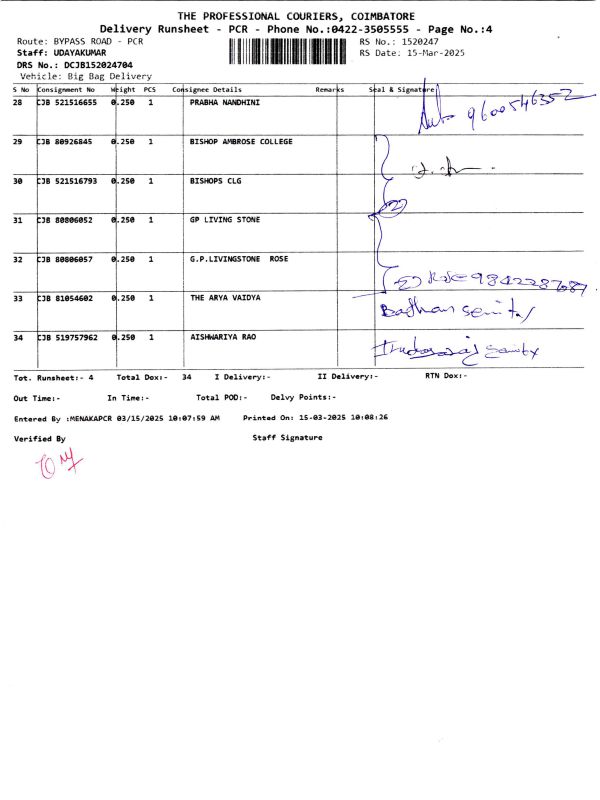 THE PROFESSIONAL COURIERS, COIMBATORE
Delivery Runsheet - PCR - Phone No.:0422-3505555 - Page No.:4
Route: BYPASS ROAD - PCR
RS No.: 1520247
Staff: UDAYAKUMAR
RS Date: 15-Mar-2025
DRS No.: DCJB152024704
Vehicle: Big Bag Delivery
S No Consignment No Weight PCS Consignee Details Remarks Seal & Signature
28 CJB 521516655 0.250 1 PRABHA NANDHINI
9600546352
29 CJB 80926845 0.250 1 BISHOP AMBROSE COLLEGE
30 CJB 521516793 0.250 1 BISHOPS CLG
31 CJB 80806052 0.250 1 GP LIVING STONE
32 CJB 80806057 0.250 1 G.P.LIVINGSTONE ROSE
33 CJB 81054602 0.250 1 THE ARYA VAIDYA
34 CJB 519757962 0.250 1 AISHWARIYA RAO
Tot. Runsheet:- 4 Total Dox:- 34 I Delivery:- II Delivery:- RTN Dox:-
Out Time:- In Time:- Total POD:- Delvy Points:-
Entered By :MENAKAPCR 03/15/2025 10:07:59 AM Printed On: 15-03-2025 10:08:26
Verified By Staff Signature